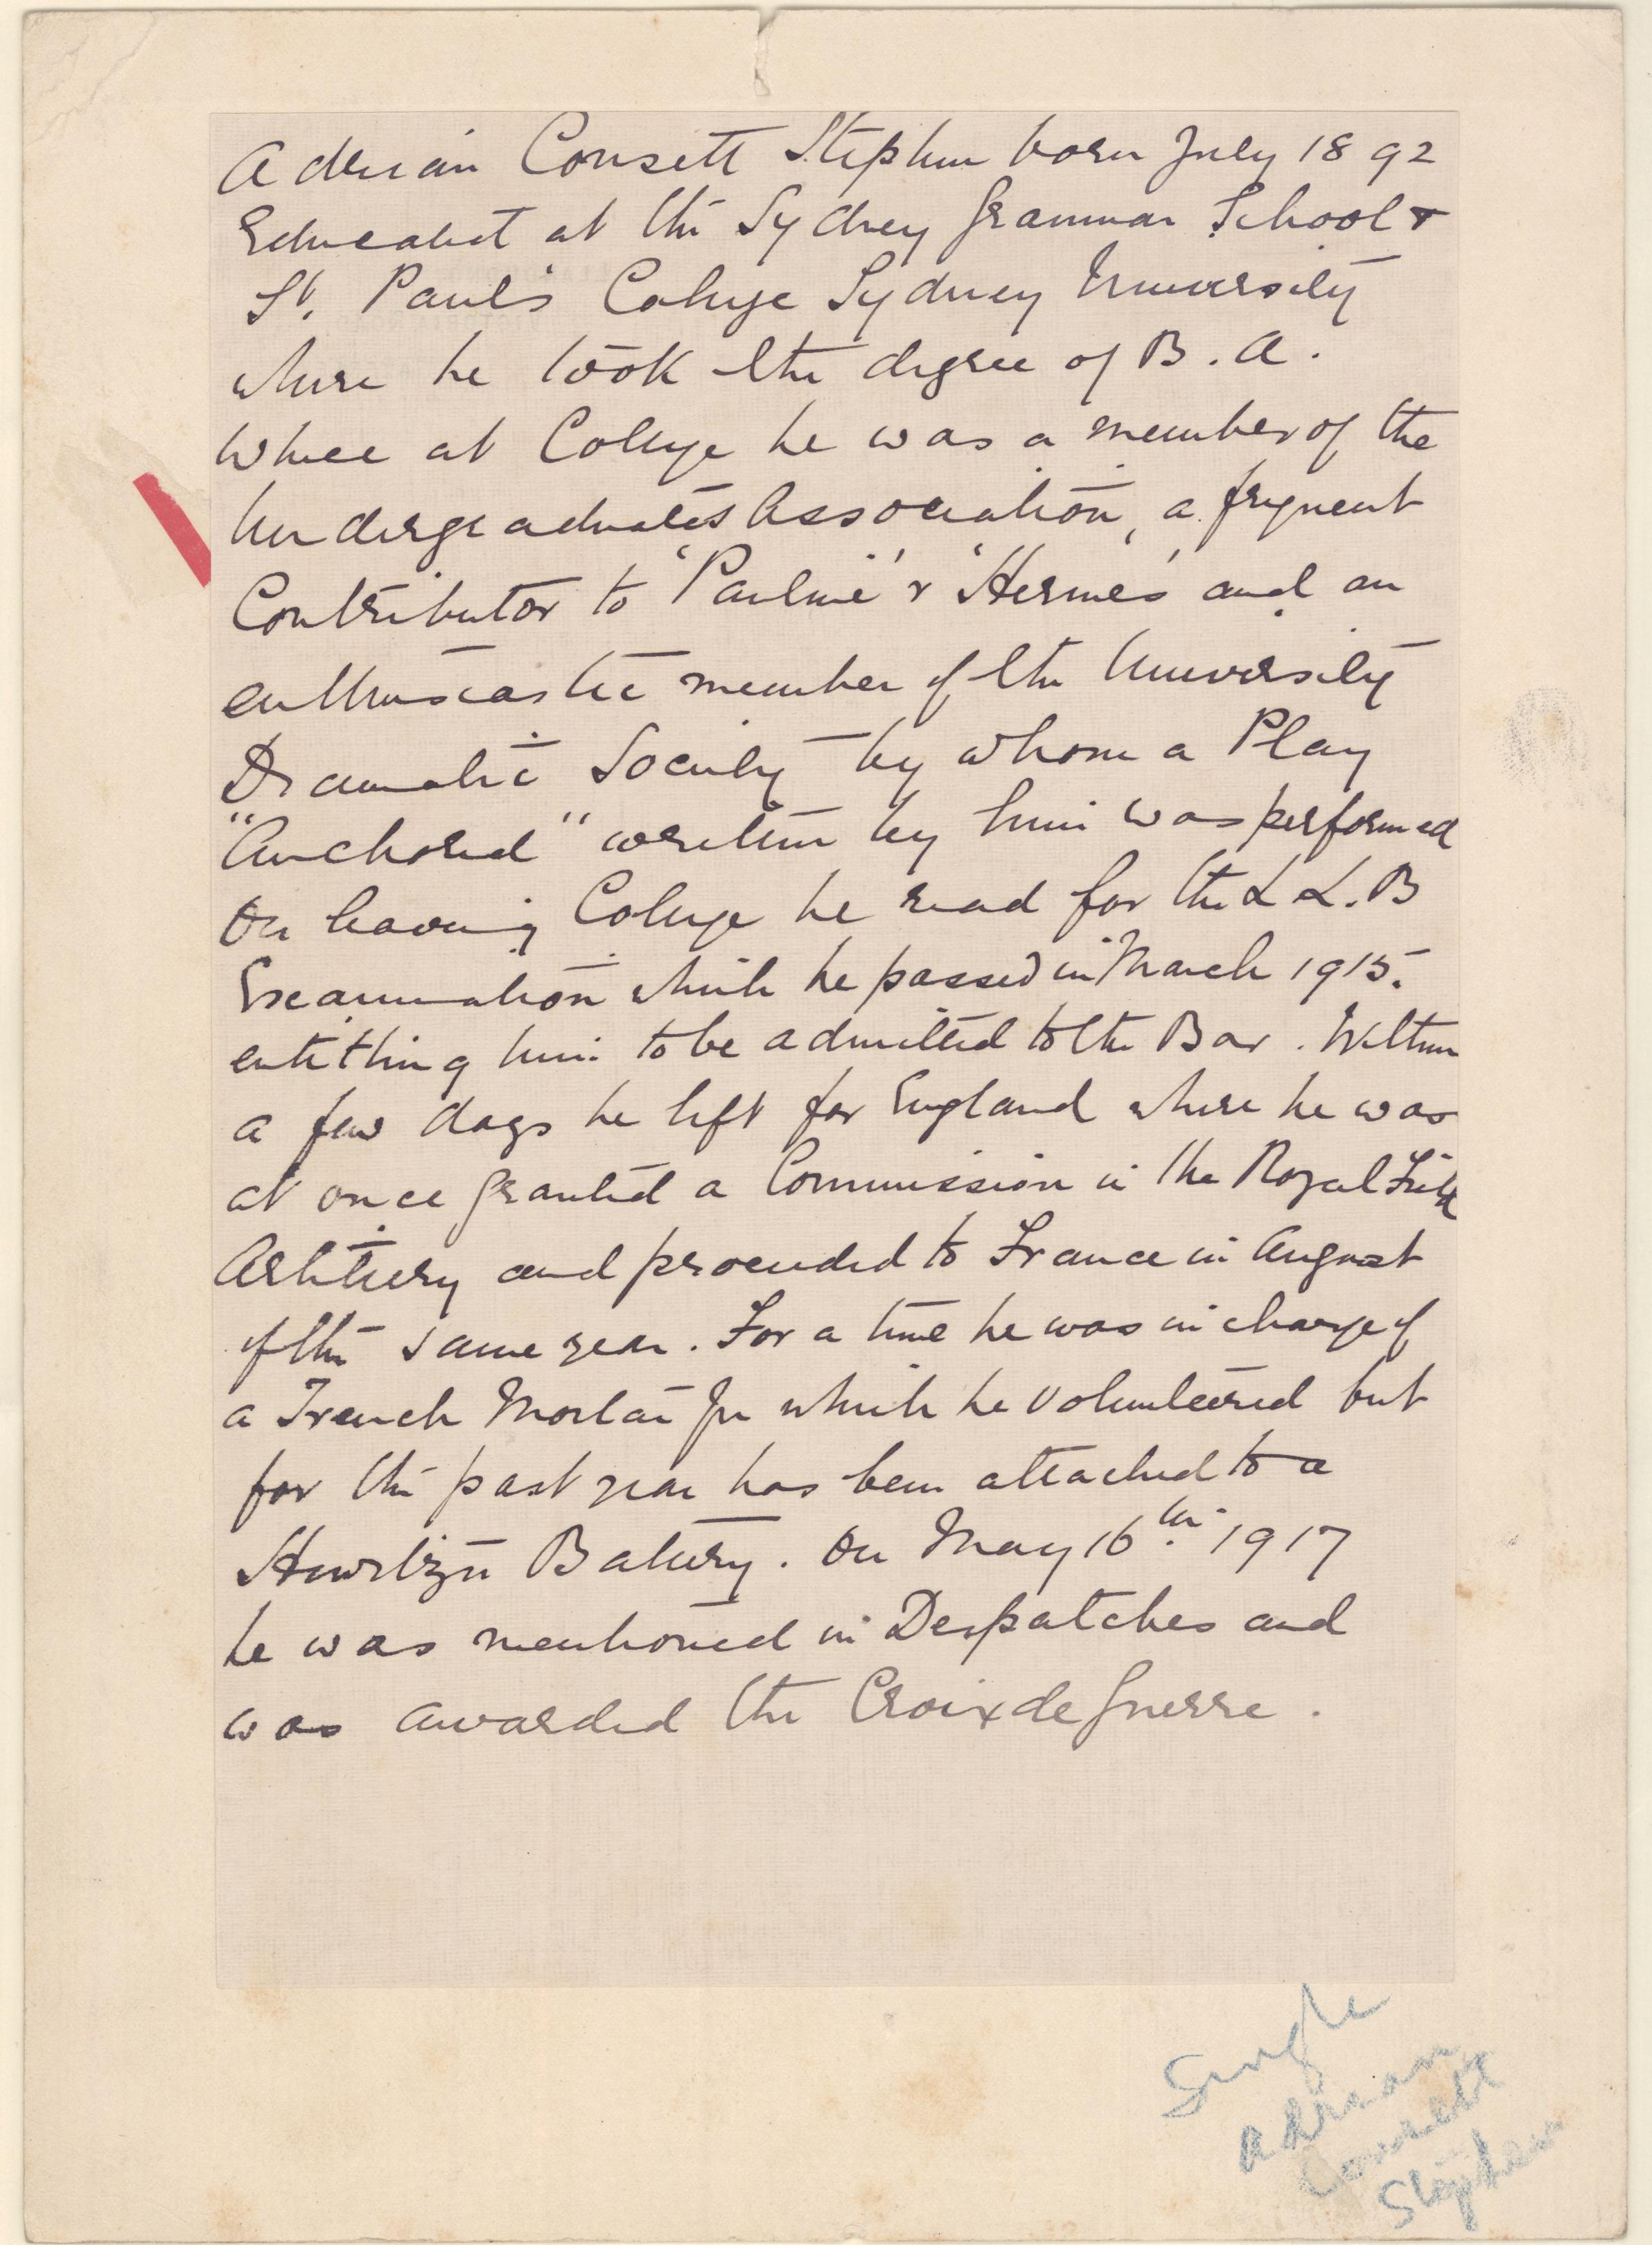 Adrian Consett Stephen born July 1892
Educated at the Sydney Grammar School &
St. Paul's College Sydney University
where he took the degree of B. A.
While at College he was a member of the
Undergraduates Association, a frequent
Contributor to 'Pauline' & 'Hermes' and an
enthusiastic member of the University
Dramatic Society by whom a Play
"Anchored" written by him was performed
On leaving College he read for the L L. B
Examination which he passed in March 1915.
entitling him to be admitted to the Bar. Within
a few days he left for England where he was
at once granted a Commission in the Royal Field
Artillery and proceeded to France in August
of the same year. For a time he was in charge of
a Trench Mortar for which he volunteered but
for the past year has been attached to a
Howitzer Battery. On May 16th 1917
he was mentioned in Despatches and
was awarded the Croix de Guerre.
Single
Adrian
Consett
Stephen